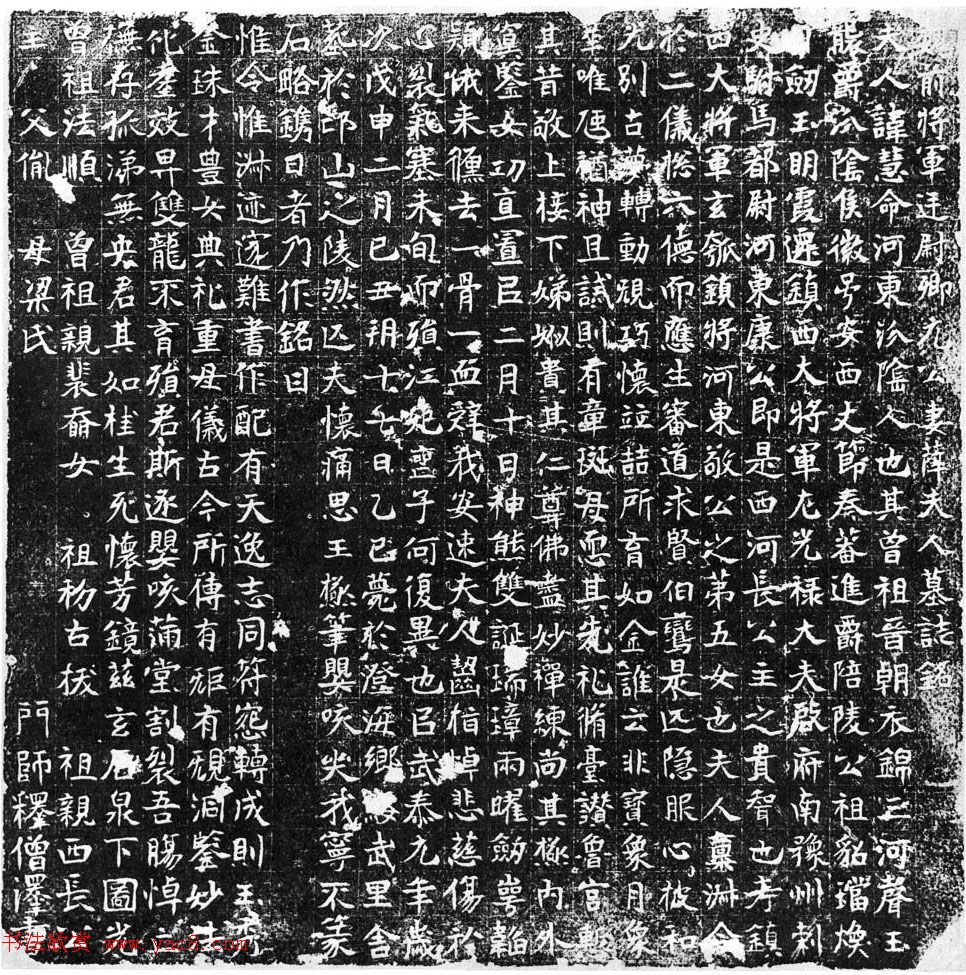 前將軍廷尉卿元公妻薛夫人墓誌銘
夫人諱慧命河東汾陰人也其曾祖晉朝衣錦三河聲王
龍爵汾陰侯徽号安西丈節秦蕃進爵陪陵公祖貂璫煥
日劒玉明霞遷鎮西大將軍左光禄大夫啟府南豫州刺
史駙馬都尉河東康公即是西河長公主之貴聟也考鎮
西大將軍玄瓠鎮將河東敬公之第五女也夫人稟淋令
於二儀惚六德而應生審道求賢伯鸞是匹隐服心被和
光別古英轉動規巧懷証喆所育如金誰云非寶象月象
華唯卮猶神且誠則有章斑母恧其先礼脩臺讃魯宫斬
其昔敬上接下娣姒貴其仁尊佛盡妙禪練尚其極内外
真鑒女功亘置㠯二月十日神熊雙誕瑞璋兩曜劒崿韜
穎俄来儵去一骨一血辝我安速夫人齧指悼悲慈傷於
心裂氣塞未旬而殞江妃墮子何復異也㠯武泰元年歲
次戊申二月己丑朔十七日乙巳薨於澄海鄉綏武里舍
於邙山之陵然匹夫懷痛思王極筆嬰咳尖我寧不篆
石略鐫日者乃作銘曰
惟令惟淋迹遂難書作配有天逸志同符惌轉成則玉秀
金珠才豊女典礼重母儀古今所傳有矩有規洞鑒妙法
化奎效畀雙龍不育殞君斯逐嬰咳蒲堂割裂吾膓悼之
無存孤涕無央君其如桂生死懷芳鏡茲玄石泉下圖光
曾祖法順 曾祖親裴奮女 祖初古拔 祖親西長公
主 父胤 母梁氏 門師釋僧澤書
书法欣赏 www.yac8.com